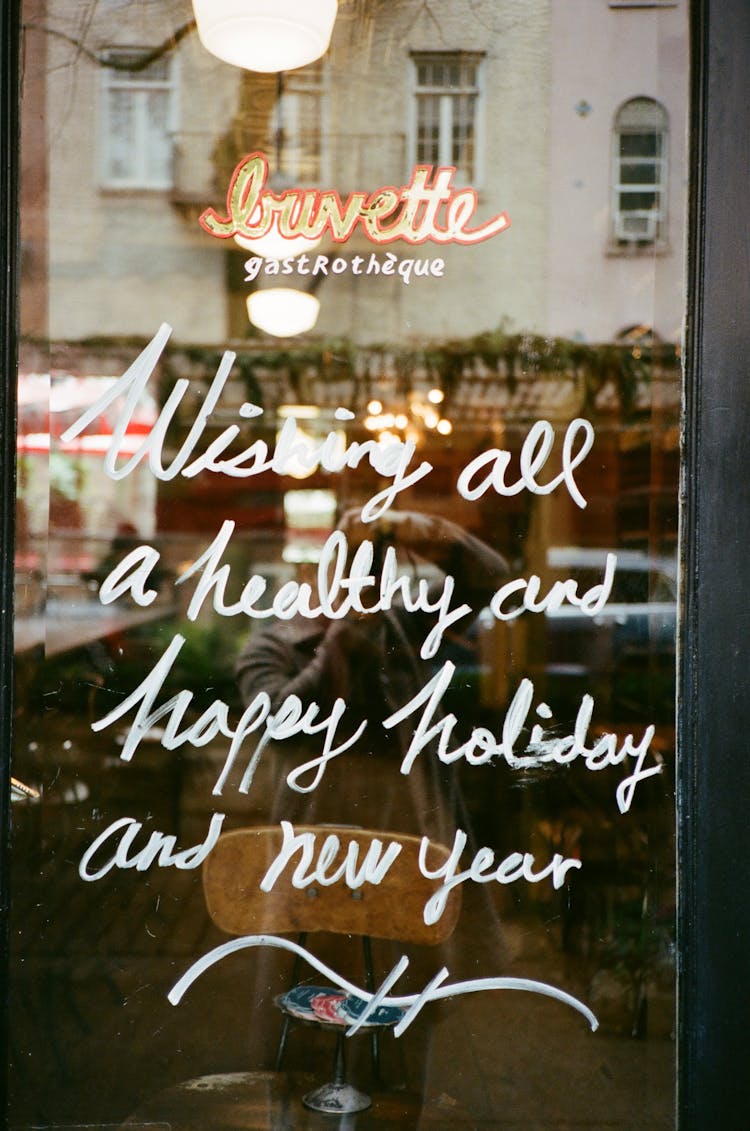 buvette
gastRothèque
Wishing all
a healthy and
happy holiday
and new year